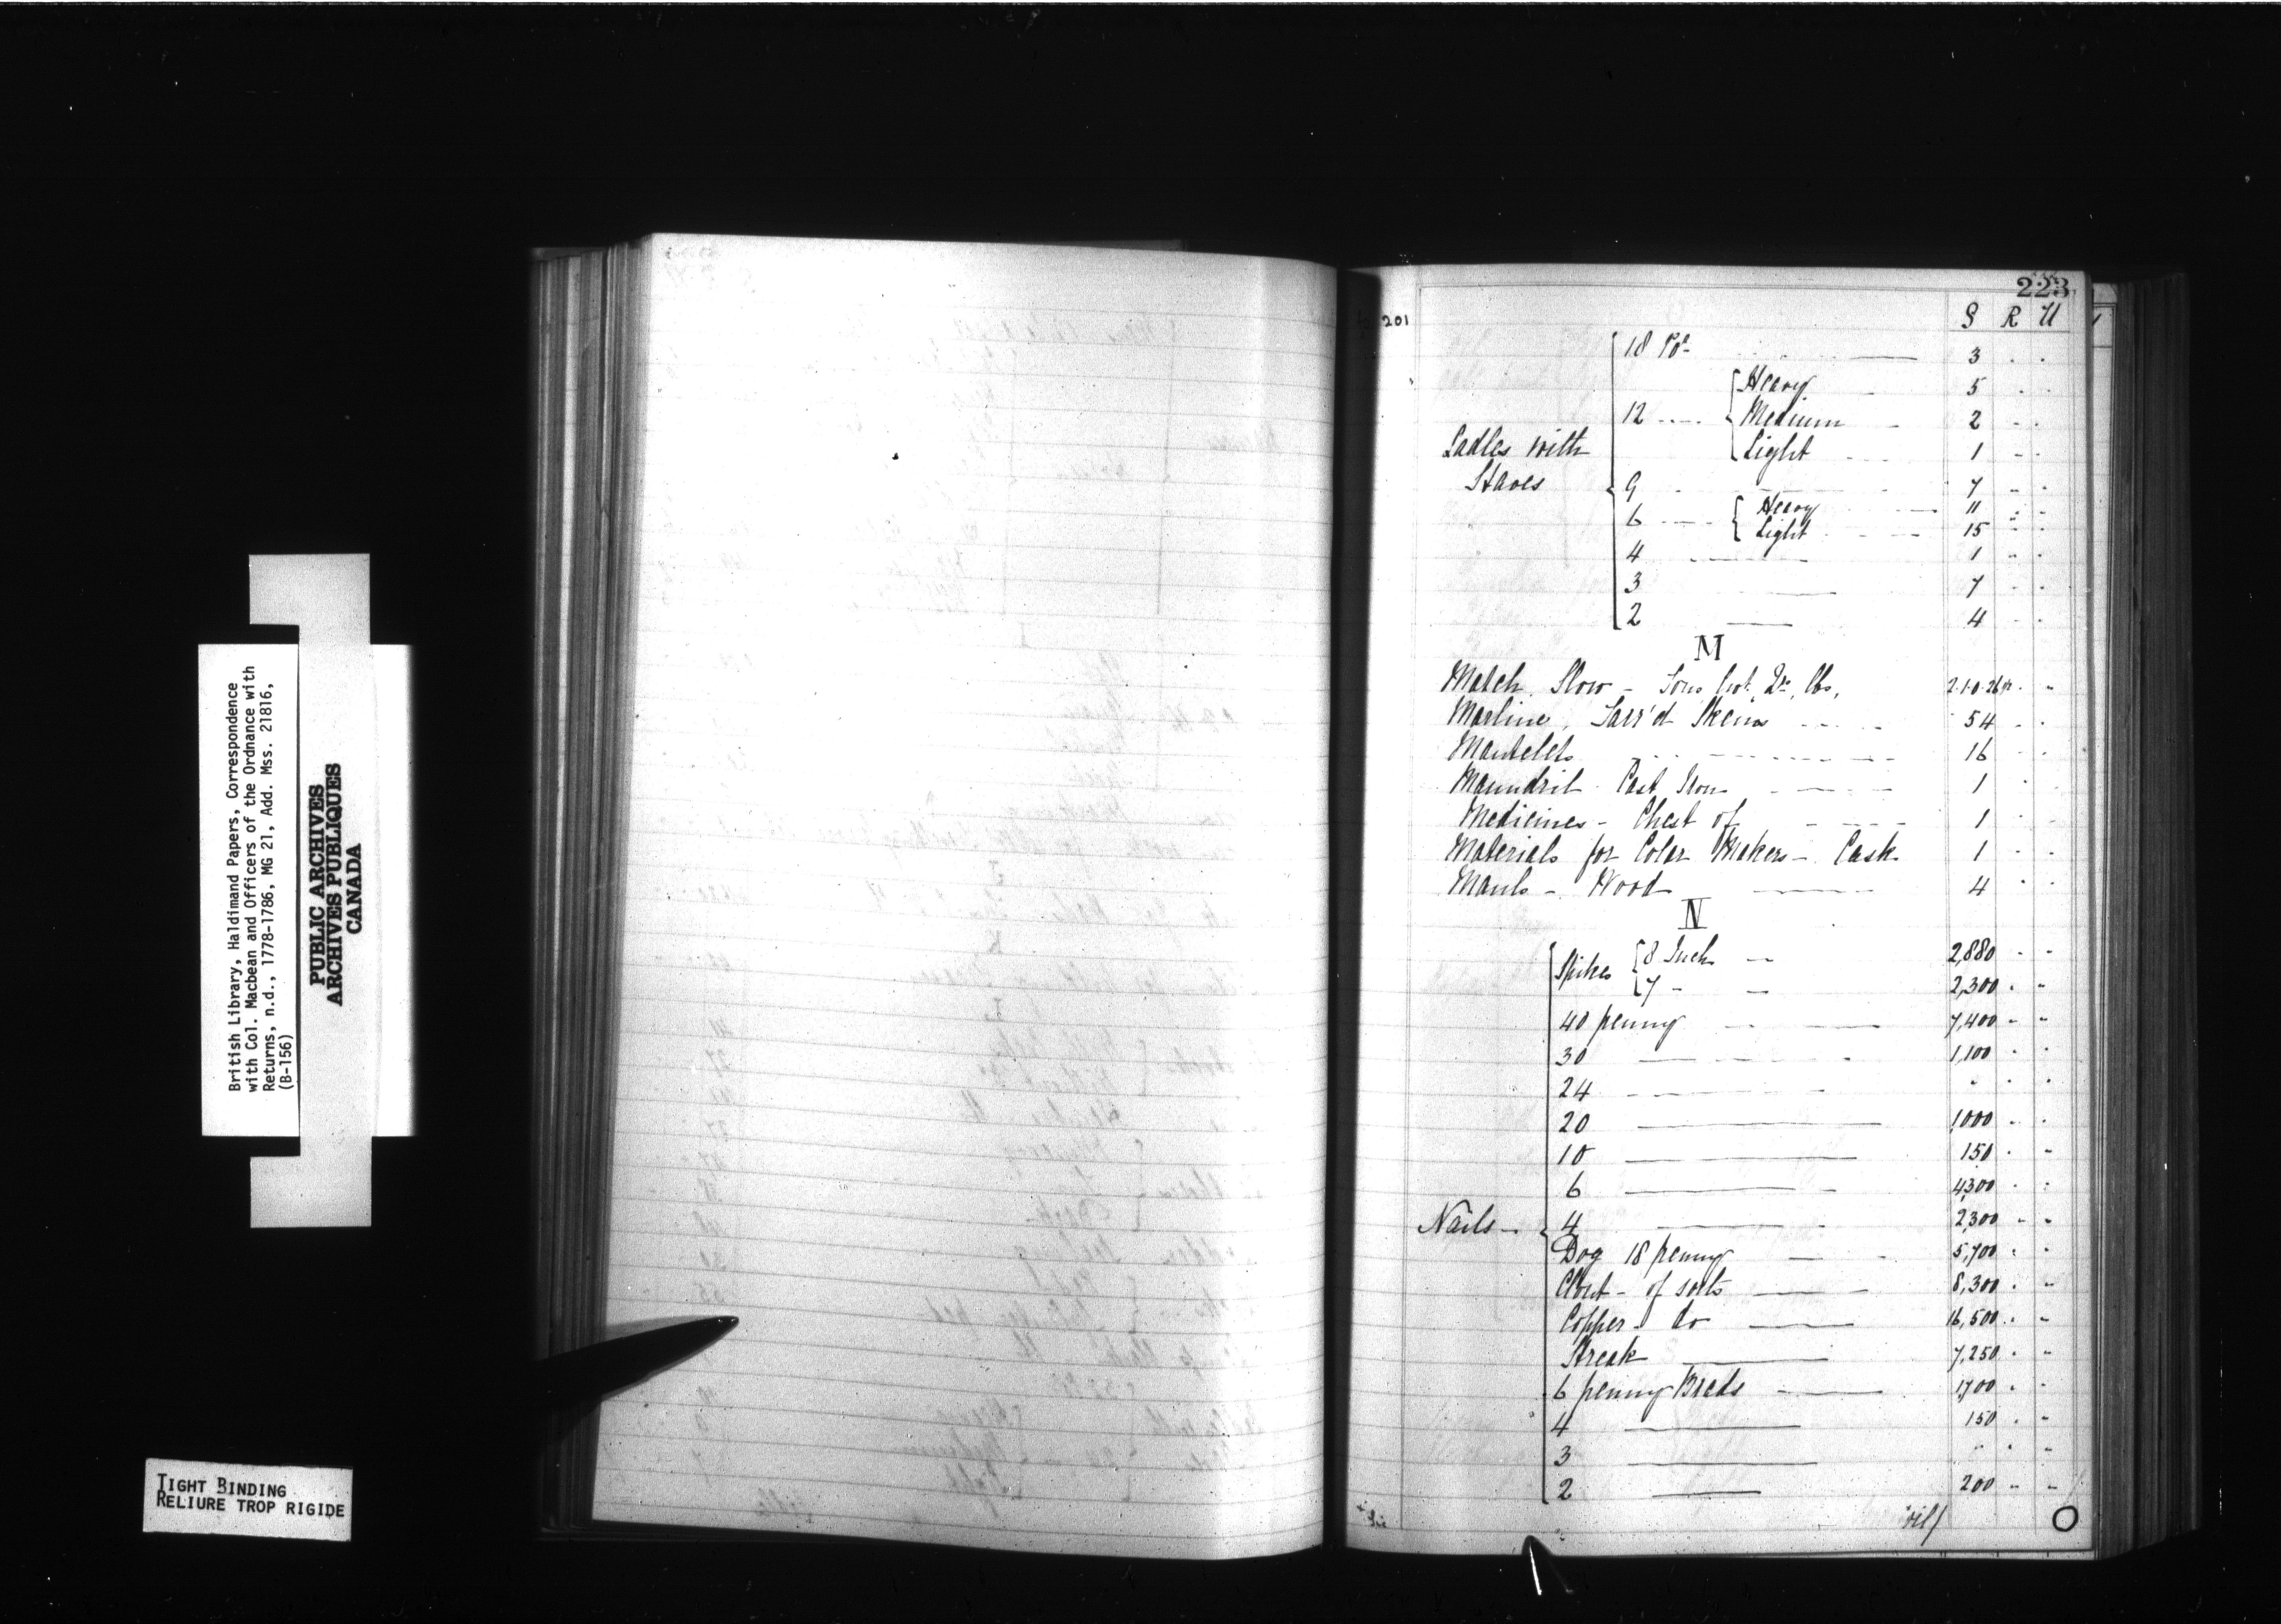 British Library, Haldimand Papers, Correspondence
with Col. Macbean and Officers of the Ordnance with
Returns, n.d., 1778-1786, MG 21, Add. Mss. 21816,
(B-156)
PUBLIC ARCHIVES
ARCHIVES PUBLIQUES
CANADA
TIGHT BINDING
RELIURE TROP RIGIDE
223
201
S R U
18 Pdr 3
Heavy 5
12 Medium 2
Ladles with Light 1
Staves
9 7
6 Heavy 11
Light 15
4 1
3 7
2 4
M
Match Slow - Tons Cwt. Qrs. lbs, 2.1.0.26
Marline, Tarr'd Skeins 54
Mantelets 16
Maundril Cast Iron 1
Medicines - Chest of 1
Materials for Colar Makers - Cask 1
Mauls - Wood 4
N
Spikes 8 Inch 2,880
7 - 2,300
40 penny 7,400
30 1,100
24
20 1,000
10 150
6 4,300
Nails - 4 2,300
Dog 18 penny 5,700
Clout - of sorts 8,300
Copper - do 16,500
Streak 7,250
6 penny Brads 1,700
4 150
3
2 200
oil/